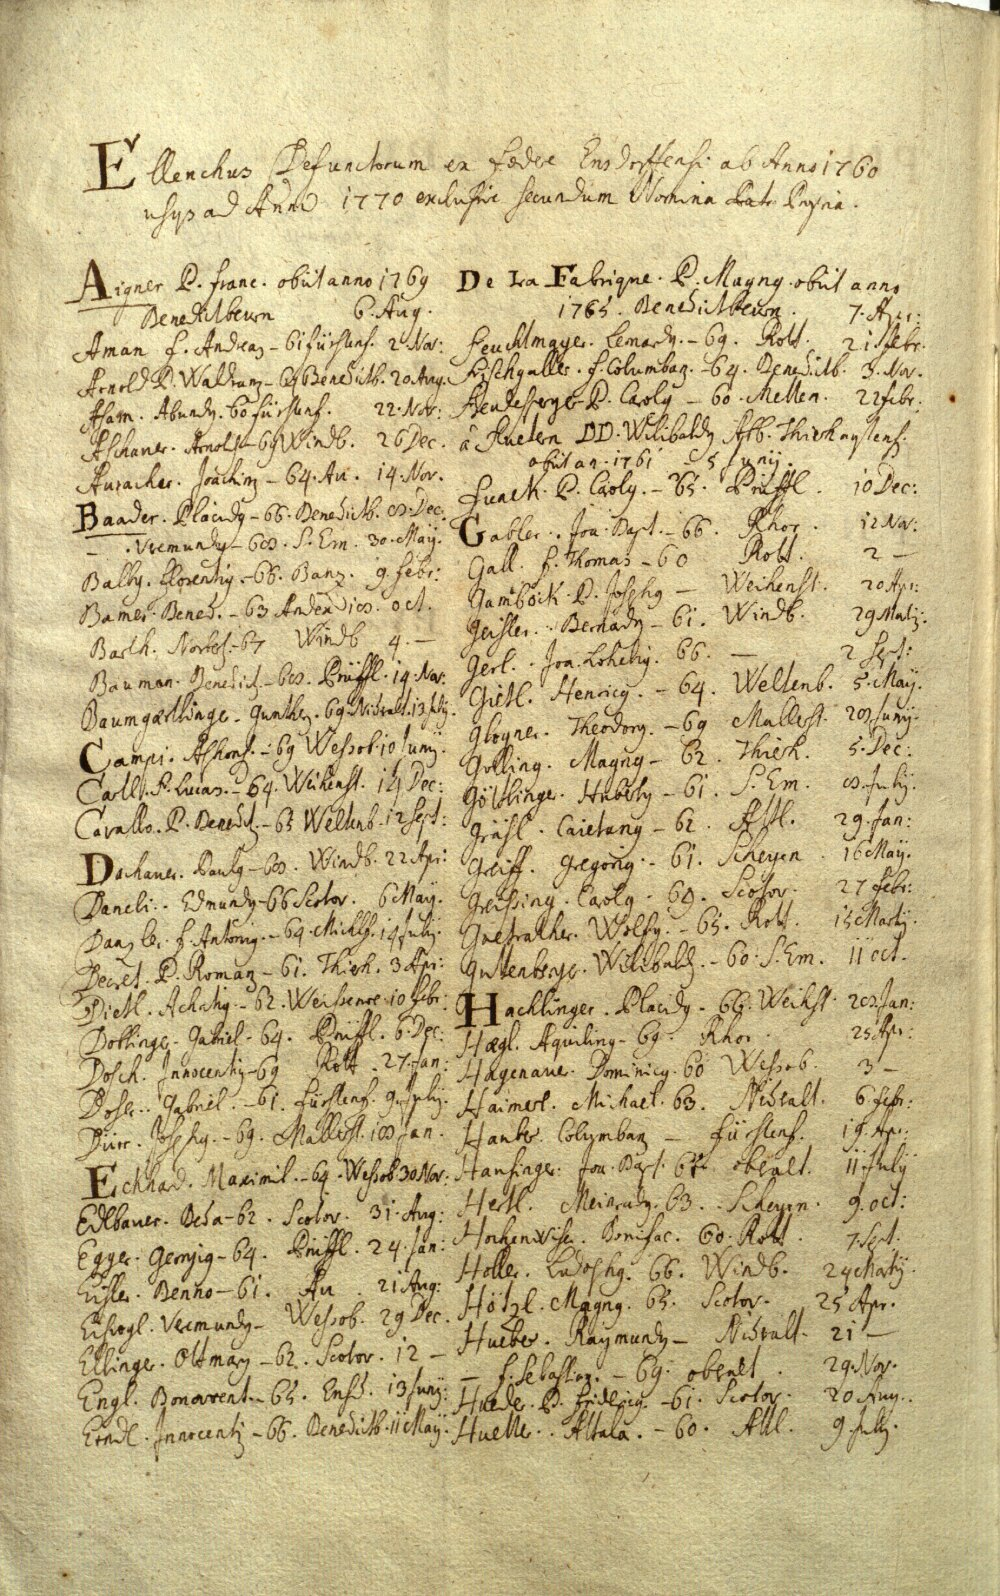 Ellenchus Defunctorum ex foedere Ensdorffensi ab Anno 1760
usq ad Ann 1770 exclusive secundum Nomina Propria.
Aigner P. Franc. obiit anno 1769
Benedictbeurn 6. Aug.
Aman F. Andreas - 61 fürstenf. 2 Nov:
Arnold P. Waldram - 69 Benedictb. 20 Aug.
Asam. Abundg. 60 fürstenf. 22. Nov:
Aschauer. Arnold - 69 Windb. 26 Dec.
Auracher. Joachim - 64. Au. 14. Nov.
Baader. Placidg - 66. Benedictb. 8. Dec:
— . Veremundg - 68. S. Em. 30. May.
Balby. Florentig. - 66. Banz. 9. febr:
Bamer. Bened. - 63 Andex 18. oct.
Barth. Norbert. - 67 Windb 4. —
Bauman. Benedict - 68. Prüffl. 14. Nov:
Baumgærtlinger. Gunther. 69. Nideralt. 13 July.
Campi. Alphons. - 69 Wessob. 10 Juny.
Carll. P. Lucas. - 64. Weihenst. 14 Dec:
Cavallo. P. Benedict. - 65 Weltenb. 12 Sept:
Dachauer. Paulg - 68. Windb. 22 Apr:
Daneli. Edmundg - 66 Scotor. 6 May.
Danzler. F. Antonig. - 64. Michlf. 14 July.
Decret. P. Roman - 61. Thierh. 3 Apr:
Dietl. Achatig. - 62. Weissenoe. 10 febr:
Dollinger. Gabriel - 64. Prüffl. 6. Dec:
Dosch. Innocentig - 69 Rott. 27. Jan:
Doser. Gabriel. - 61. fürstenf. 9. July.
Dürr. Josephg. - 69. Mallerst. 18 Jan.
Eckhard. Maximil. - 64. Wessob. 30 Nov:
Edlbauer. Beda - 62. Scotor. 31. Aug:
Egger. Georgig - 64. Prüffl. 24. Jan:
Eisler. Benno - 61. Au. 21 Aug:
Eisvogl. Veremundg - Wessob. 29 Dec.
Ellinger. Ottmarg - 62. Scotor. 12 —
Engl. Bonavent. - 65. Ensd. 13 Juny:
Erndl. Innocentg - 66. Benedictb. 11 May.
De La Fabrique. P. Magng. obiit anno
1765. Benedictbeurn. 7. Apr:
Feuchtmayer. Leonardg. - 69. Rott. 21 febr.
Fischgaller. F. Columban. - 64. Benedictb. 3. Nov.
P. Carolg - 60. Metten. 22 febr:
à DD. Wilibaldg Abb. Thierhaptens.
obiit an. 1761 5 Junij.
Funck. P. Carolg. - 65. Prüffl. 10 Dec:
Gabler. Joa: Bapt. - 66. Rhor. 12 Nov:
Gall. F. Thomas - 60 Rott. 2 —
Gamböck. P. Josephg — Weihenst. 20 Apr:
Geisler. Bernardg - 61. Windb. 29 Martij.
Gerl. Joa. 66. — 2 Sept:
Gietl. Henricg. - 64. Weltenb. 5. May.
Glogner. Theodorg. - 69 Mallerst. 28 Juny.
Golling. Magng - 62. Thierh. 5. Dec:
Göttlinger. Hubertg - 61. S. Em. 8. July.
Gräsl. Caietang - 62. Attl. 29. Jan:
Greiff. Gregorig. - 61. Scheyrn. 16 May.
Greissing. Carolg. 69. Scotor. 27 febr:
Guetrather. Wolfg. - 65. Rott. 15 Martij.
Guttenberger. Wilibald. - 60. S. Em. 11 oct.
Hachlinger. Placidg. 66. Weihst. 28 Jan:
Hægl. Aquiling - 69. Rhor. 25 Apr:
Hagenauer. Dominicg. 60 Wessob. 3 —
Haimerl. Michael. 63. Nideralt. 6 febr:
Hanber. Colymban — fürstenf. 19. Apr:
Hansinger. Joa. Bapt. 62. oberalt. 11 July
Hertl. Meinradg. 63. Scheyrn. 9. oct:
Bonifac. 60. Rott. 7. Sept.
Holler. Ludolphg. 66. Windb. 24 Martij.
Hötzl. Magng. 65. Scotor. 25 Apr.
Hueber. Raymundg — Nideralt. 21 —
— F. Sebastian. - 69. oberalt. 29. Nov.
Hueder. P. Fridericg - 61. Scotor. 20 Aug.
Hueller. Attala. - 60. Attl. 9. July.